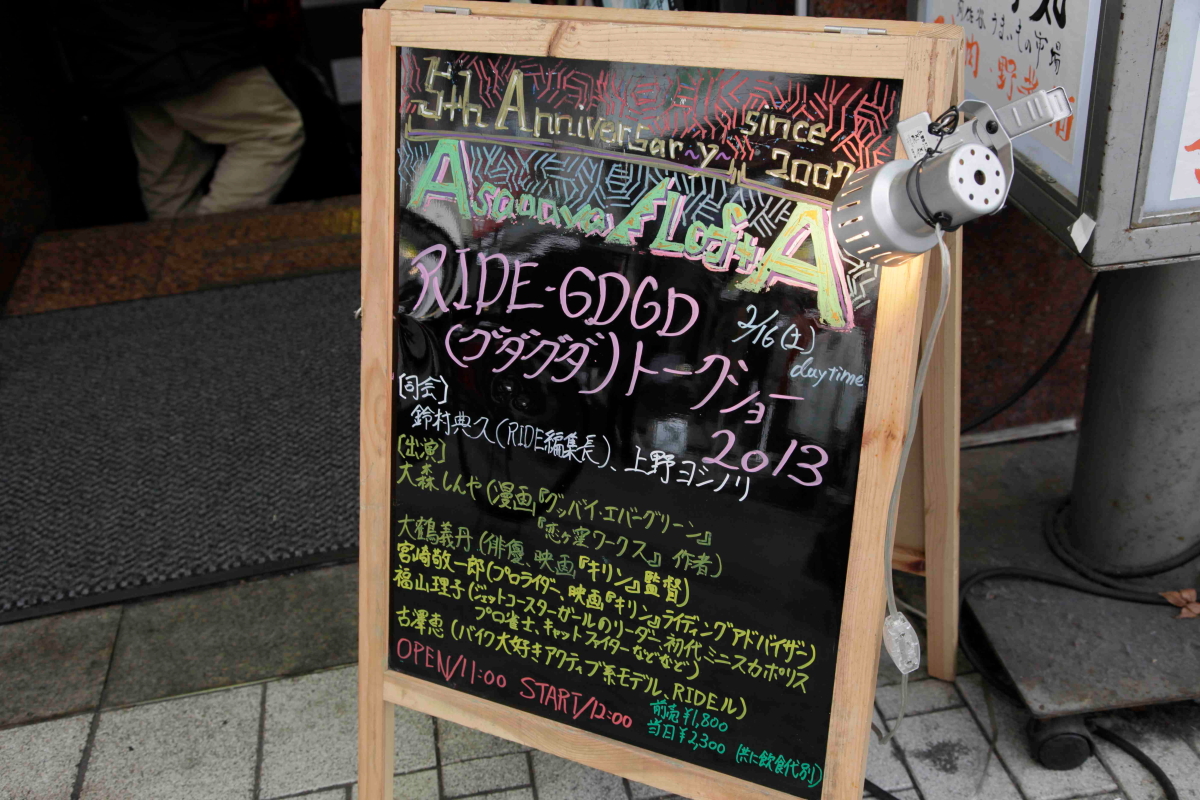 5th Anniversary
since 2007
Asagaya/LoftA
RIDE-GDGD
2/16(土)
daytime
(グダグダ)トークショー
2013
[司会]
鈴村典久(RIDE編集長)、上野ヨシノリ
[出演]
大森しんや(漫画『グッバイ・エバーグリーン』
『恋ヶ窪ワークス』作者)
大鶴義丹(俳優、映画『キリン』監督)
宮崎敬一郎(プロライダー、映画『キリン』ライディングアドバイザー)
福山理子(ジェットコースターガールのリーダー、初代ミニスカポリス
プロ雀士、キャットファイターなどなど)
古澤恵(バイク大好きアクティブ系モデル、RIDEル)
OPEN/11:00 START/12:00
前売¥1,800
当日¥2,300 (共に飲食代別)
うまいもの市場
肉・野菜